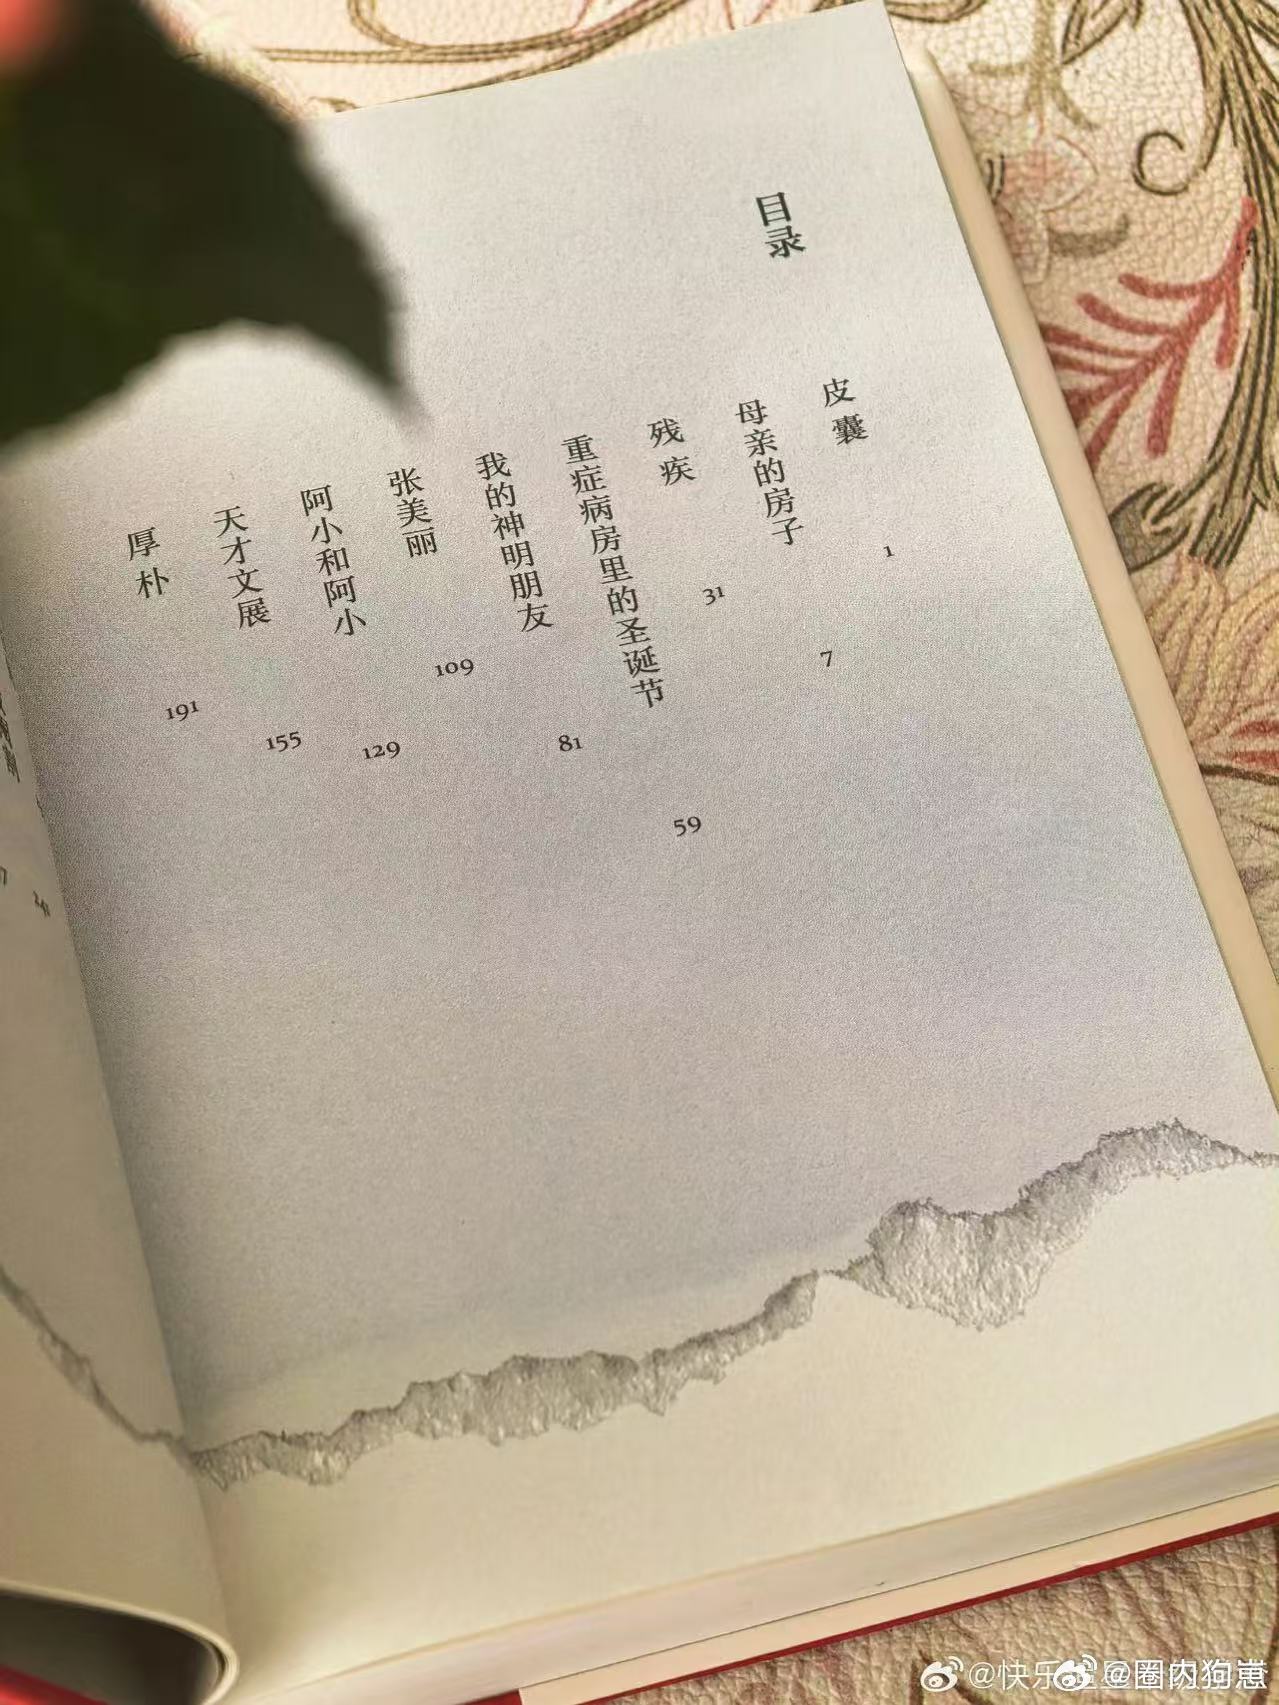 目录
皮囊
1
母亲的房子
7
残疾
31
重症病房里的圣诞节
59
我的神明朋友
81
张美丽
109
阿小和阿小
129
天才文展
155
厚朴
191
241
@圈内狗崽